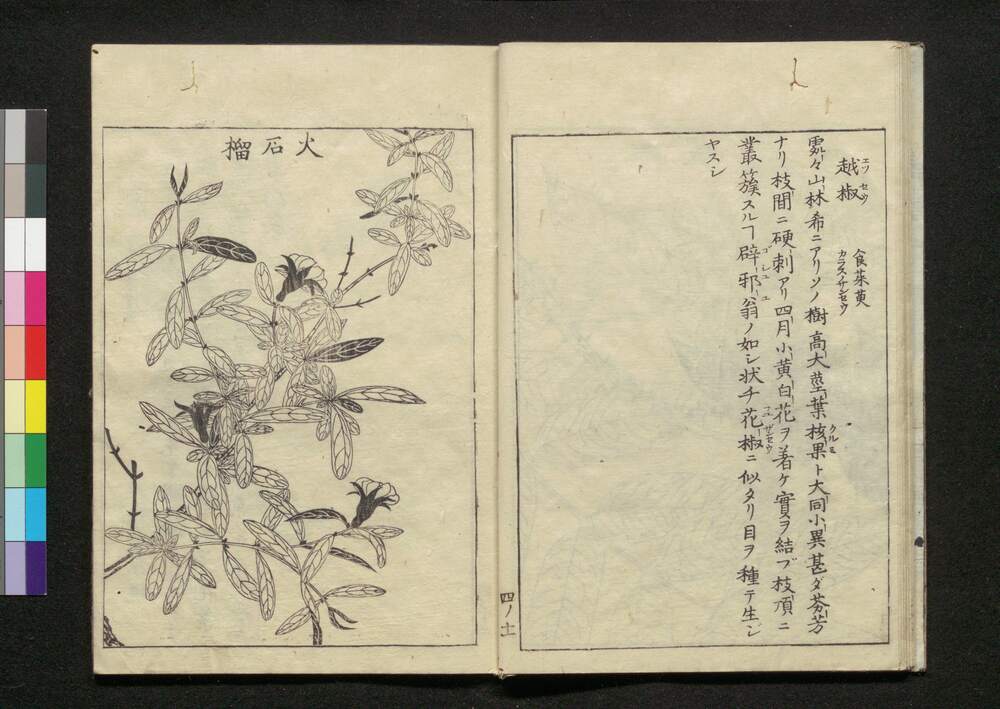 越椒 エツセウ 食茱萸 カラスノサンセウ
處々山林希ニアリソノ樹高大莖葉核果ト大同小異甚ダ芬芳
ナリ枝間ニ硬刺アリ四月小黄白花ヲ著ケ實ヲ結ブ枝頂ニ
叢簇スルヿ辟邪翁ノ如シ状チ花椒ニ似タリ目ヲ種テ生ジ
ヤスシ
火石榴
四ノ十一